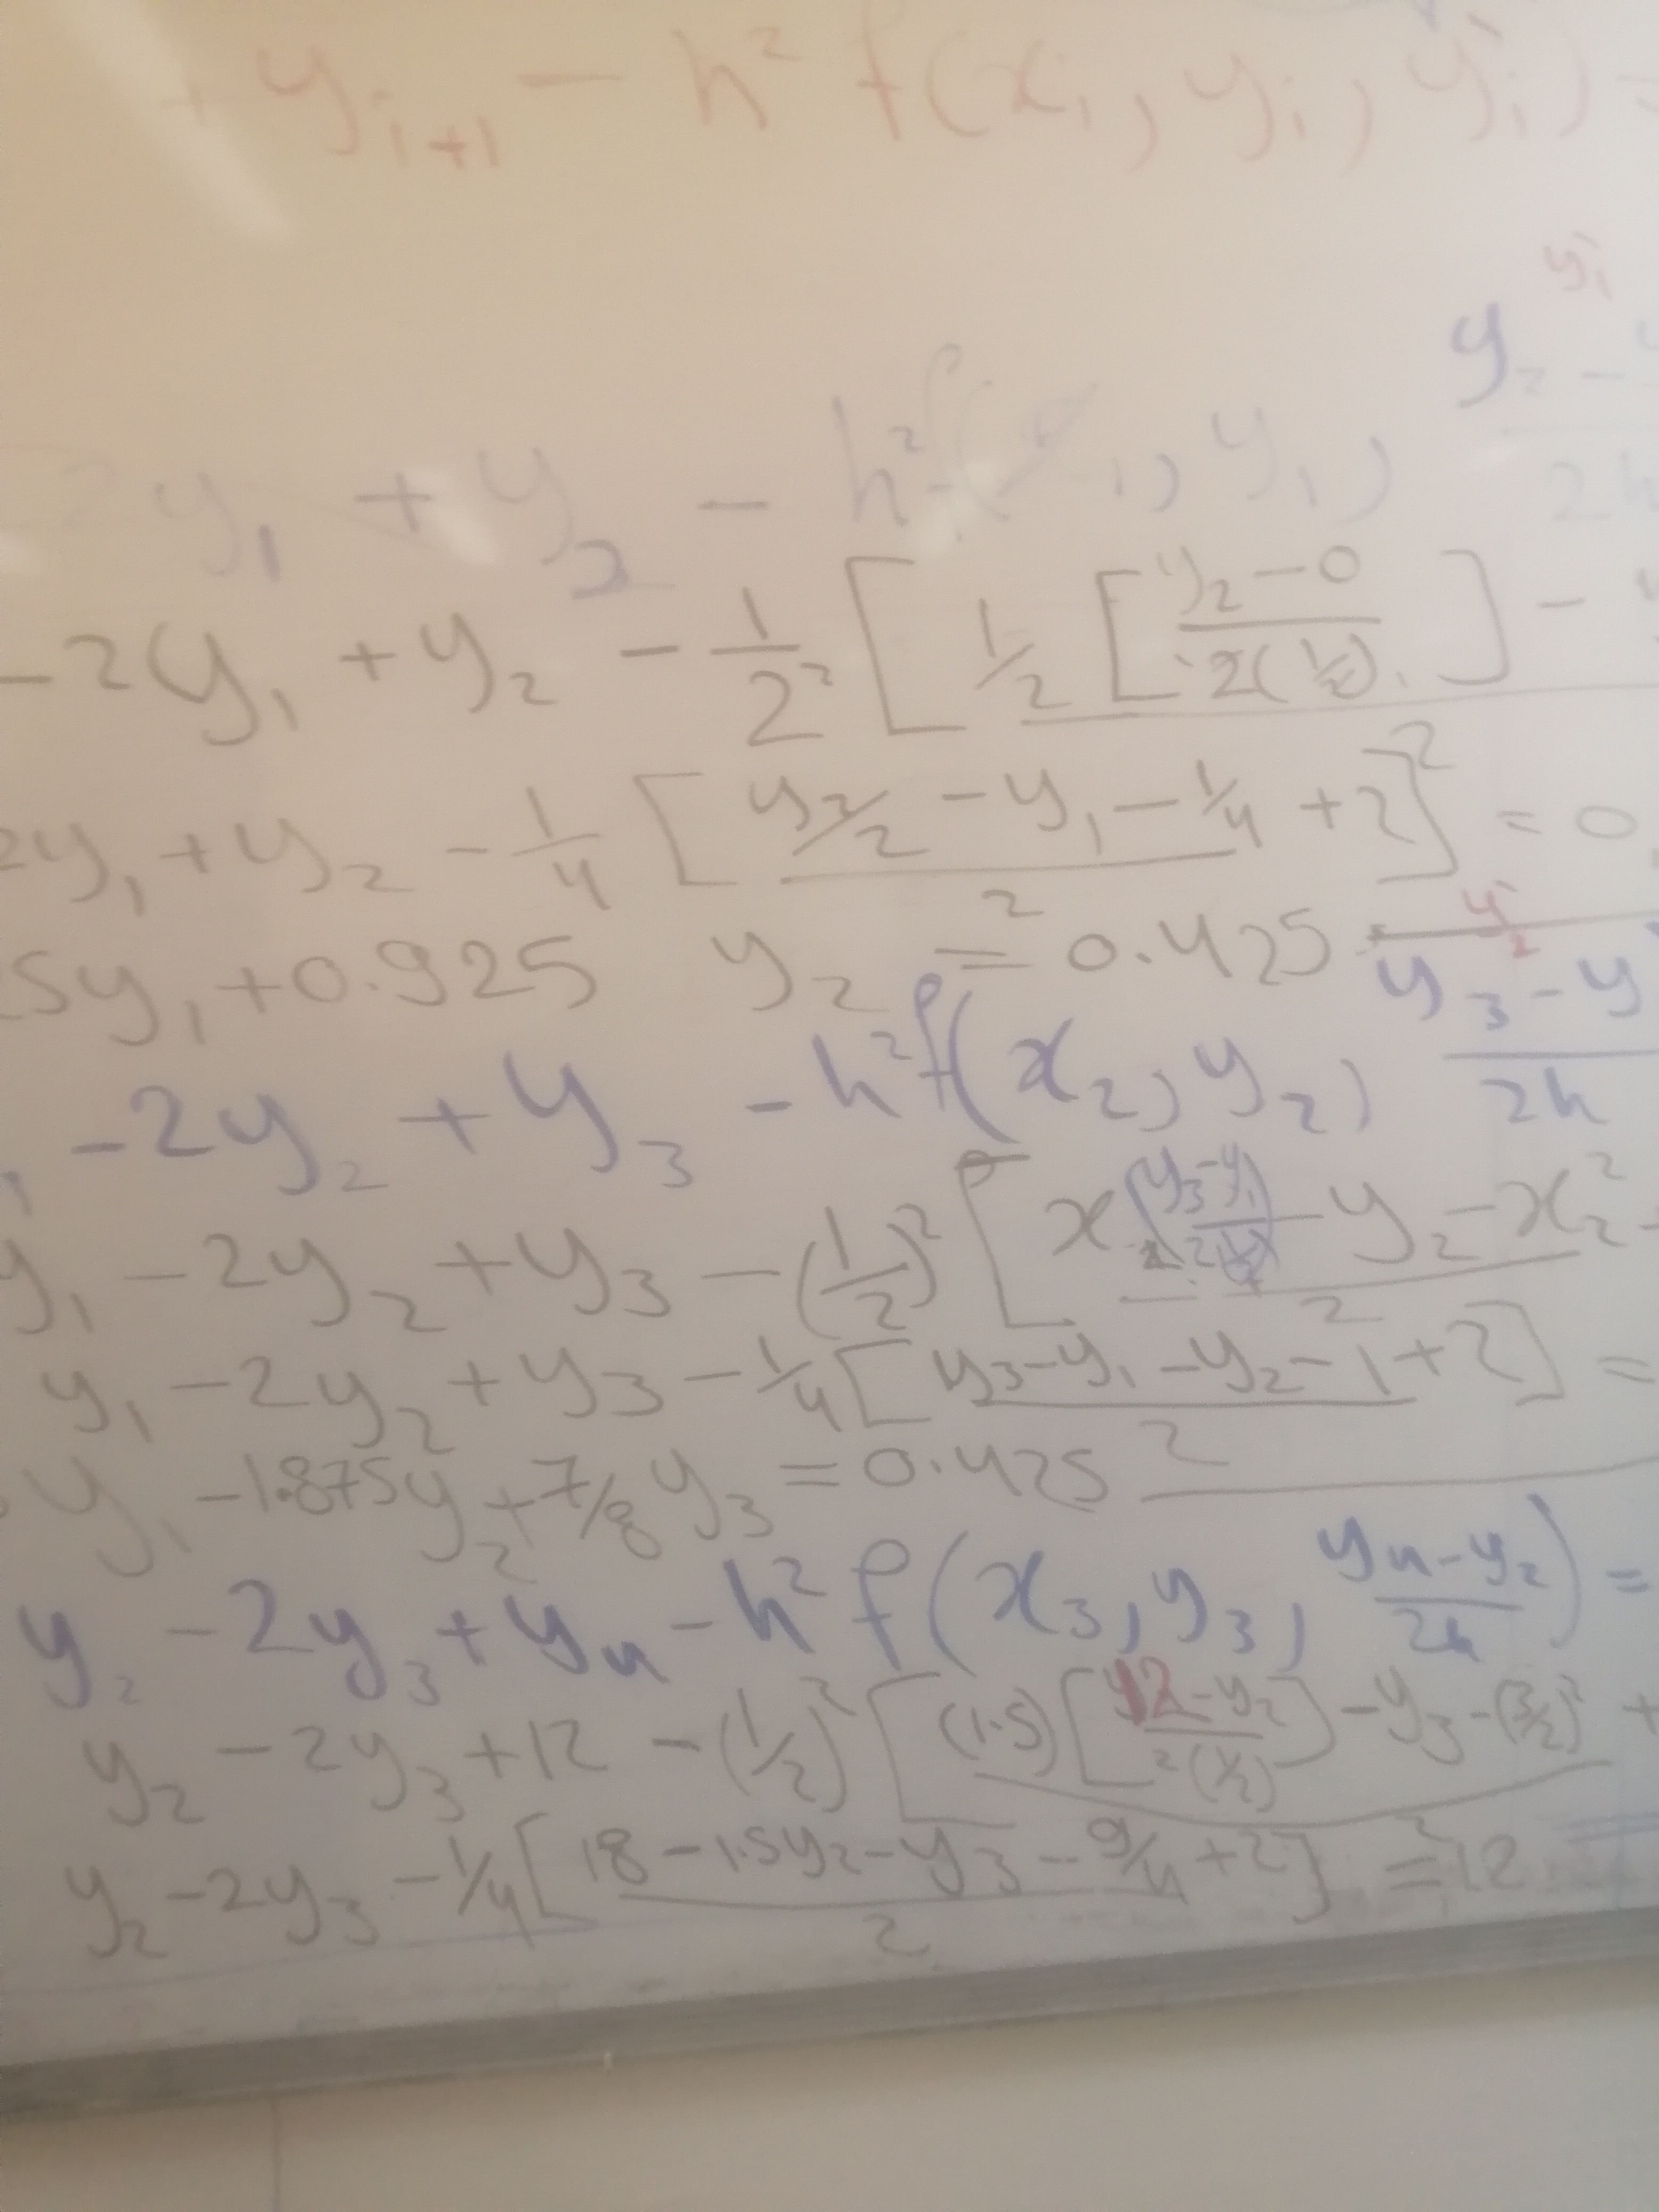 + y_{i+1} - h² f(x_i, y_i, y'_i) =
y'_1
y_2 -
2y_1 + y_2 - h² f( _1, y_1, 2h
-2y_1 + y_2 - 1/2² [ 1/2 [ (y_2 - 0)/(2(1/2)) ] -
2y_1 + y_2 - 1/4 [ (y_2/2 - y_1 - 1/4 + 2)/2 ]² = 0
5y_1 + 0.925 y_2 = 0.425
y'_2
-2y_2 + y_3 - h² f(x_2, y_2, (y_3 - y)/2h
y_1 - 2y_2 + y_3 - (1/2)² [ (x ((y_3 - y_1)/(2(1/2))) - y_2 - x_2²)/2
y_1 - 2y_2 + y_3 - 1/4 [ (y_3 - y_1 - y_2 - 1 + 2)/2 ] =
y_1 - 1.875y_2 + 7/8 y_3 = 0.425
y_2 - 2y_3 + y_4 - h² f(x_3, y_3, (y_4 - y_2)/2h) =
y_2 - 2y_3 + 12 - (1/2)² [ (1.5) [ (12 - y_2)/(2(1/2)) ] - y_3 - (3/2)² +
y_2 - 2y_3 - 1/4 [ (18 - 1.5y_2 - y_3 - 9/4 + 2)/2 ] = 12